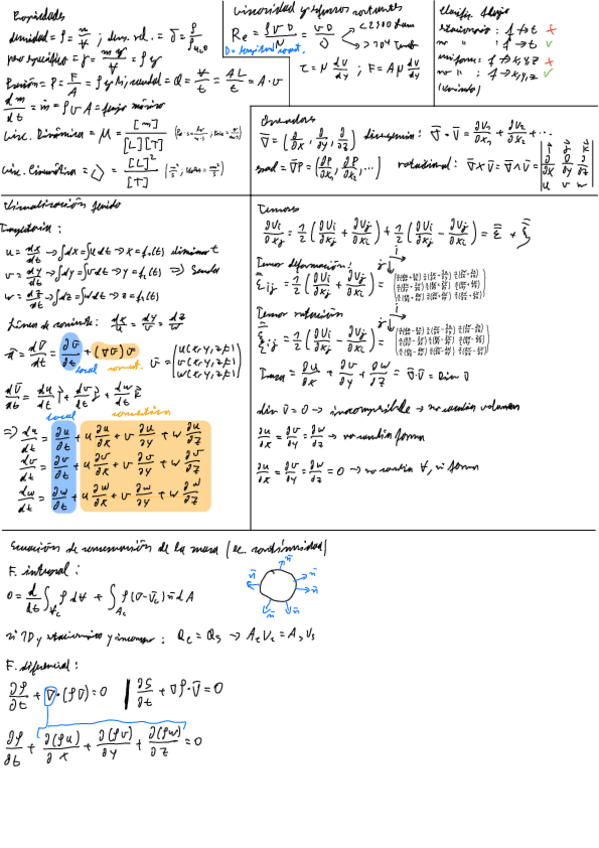 Propiedades
densidad = ρ = m/∀ ; dens. rel. = δ = ρ/ρ_H2O
peso específico = γ = mg/∀ = ρg
Presión = P = F/A = ρgh ; caudal = Q = ∀/t = AL/t = A·v
dm/dt = ṁ = ρvA = flujo másico
Visc. Dinámica = μ = [m]/[L][T]
Visc. Cinemática = [L]²/[T]
Viscosidad y esfuerzos cortantes
Re = ρvD/μ = vD
<2300 Lam
D = longitud caract.
τ = μ dv/dy ; F = Aμ dv/dy
Clasific. flujo
estacionario : f → t ✗
no " : f → t ✓
uniforme : f → x,y,z ✗
no " : f → x,y,z ✓
Operadores
∇̄ = (∂/∂x, ∂/∂y, ∂/∂z) divergencia: ∇̄·v̄ = ∂v₁/∂x₁ + ∂v₂/∂x₂ + ...
grad = ∇̄P = (∂P/∂x₁, ∂P/∂x₂, ...) rotacional: ∇̄×v̄ = ∇̄∧v̄ = | i j k ; ∂/∂x ∂/∂y ∂/∂z ; u v w |
Visualización fluido
Trayectoria :
u = dx/dt → ∫dx = ∫u dt → x = f₁(t) eliminar t
v = dy/dt → ∫dy = ∫v dt → y = f₂(t) ⇒ Senda
w = dz/dt → ∫dz = ∫w dt → z = f₃(t)
Líneas de corriente: dx/u = dy/v = dz/w
ā = dv̄/dt = ∂v̄/∂t + (∇v̄)v v̄ = (u(x,y,z,t) v(x,y,z,t) w(x,y,z,t))
local convect.
dv̄/dt = du/dt i + dv/dt j + dw/dt k
local convectiva
⇒ du/dt = ∂u/∂t + u ∂u/∂x + v ∂u/∂y + w ∂u/∂z
dv/dt = ∂v/∂t + u ∂v/∂x + v ∂v/∂y + w ∂v/∂z
dw/dt = ∂w/∂t + u ∂w/∂x + v ∂w/∂y + w ∂w/∂z
Tensores
∂Vi/∂xj = 1/2 (∂Vi/∂xj + ∂Vj/∂xi) + 1/2 (∂Vi/∂xj − ∂Vj/∂xi) = ε̿ + ξ̿
Tensor deformación:
ε̿ij = 1/2 (∂Vi/∂xj + ∂Vj/∂xi) =
Tensor rotación
ξ̿ij = 1/2 (∂Vi/∂xj − ∂Vj/∂xi) =
Traza = ∂u/∂x + ∂v/∂y + ∂w/∂z = ∇̄·v̄ = Div v̄
div v̄ = 0 → incompresible → no cambia volumen
∂u/∂x = ∂v/∂y = ∂w/∂z → no cambia forma
∂u/∂x = ∂v/∂y = ∂w/∂z = 0 → no cambia ∀, ni forma
Ecuación de conservación de la masa (ec. continuidad)
F. integral :
0 = d/dt ∫_∀c ρ d∀ + ∫_Ac ρ(v̄ − v̄c) n̄ dA
n̄ n̄ n̄ n̄ n̄ n̄
si 1D y estacionario y incomp : Qe = Qs → AeVe = AsVs
F. diferencial :
∂ρ/∂t + ∇·(ρv̄) = 0 | ∂ρ/∂t + ∇ρ·v̄ = 0
∂ρ/∂t + ∂(ρu)/∂x + ∂(ρv)/∂y + ∂(ρw)/∂z = 0